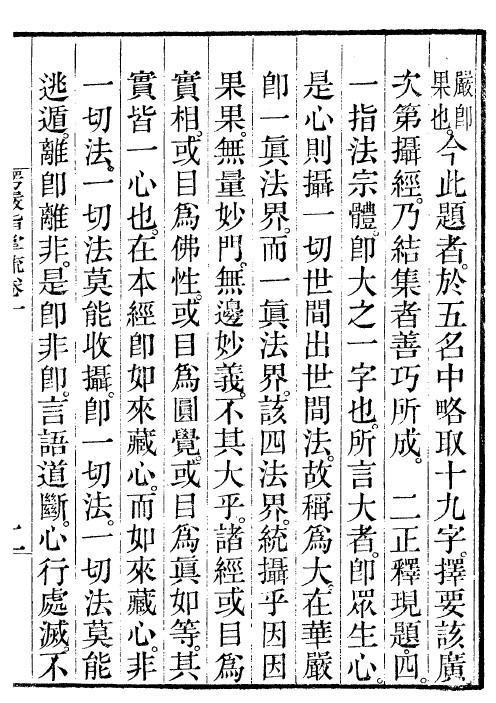 嚴卽
果也。今此題者。於五名中略取十九字。擇要該廣。
次第攝經。乃結集者善巧所成。　二正釋現題。四。
一指法宗體。卽大之一字也。所言大者。卽眾生心。
是心則攝一切世間出世間法。故稱爲大。在華嚴
卽一眞法界。而一眞法界。該四法界。統攝乎因因
果果。無量妙門。無邊妙義。不其大乎。諸經或目爲
實相。或目爲佛性。或目爲圓覺。或目爲眞如等。其
實皆一心也。在本經卽如來藏心。而如來藏心。非
一切法。一切法莫能收攝。卽一切法。一切法莫能
逃遁。離卽離非。是卽非卽。言語道斷。心行處滅。不
楞嚴指掌疏卷一